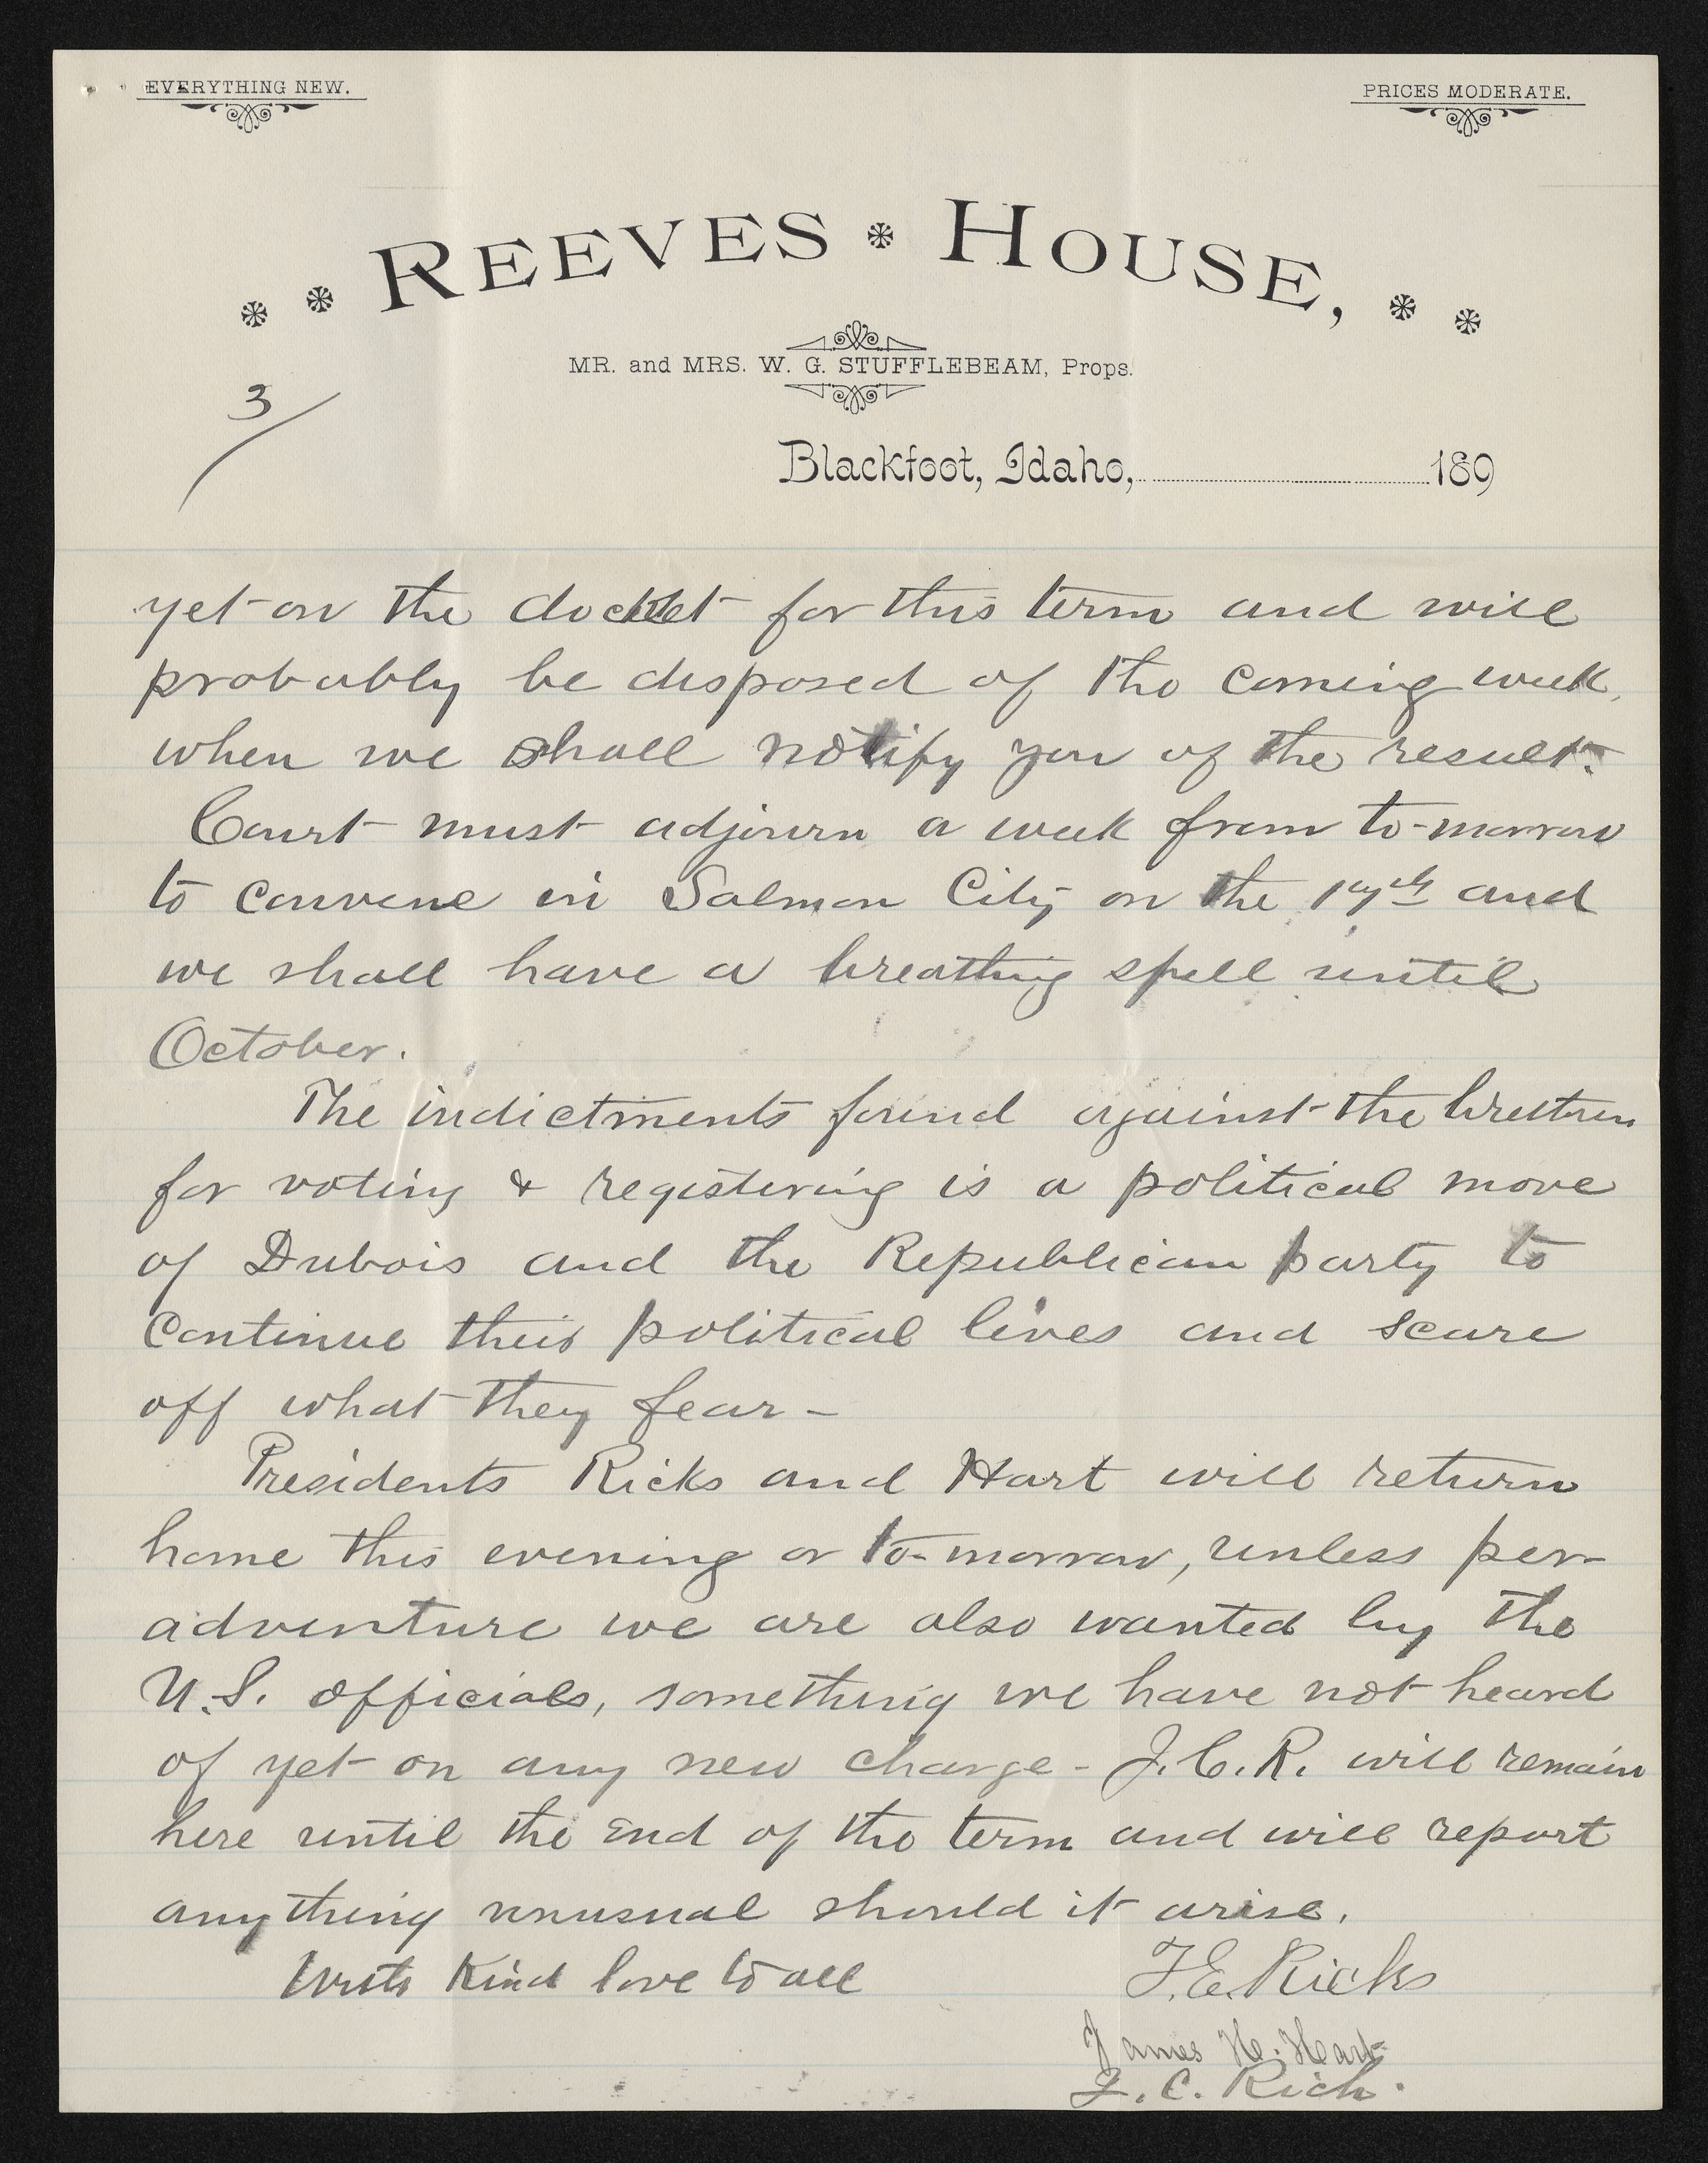 EVERYTHING NEW.
PRICES MODERATE.
REEVES HOUSE,
MR. and MRS. W. G. STUFFLEBEAM, Props.
3/
Blackfoot, Idaho, 189
yet on the docket for this term and will
probably be disposed of the coming week,
when we shall notify you of the result.
Court must adjourn a week from to-morrow
to convene in Salmon City on the 17th and
we shall have a breathing spell until
October.
The indictments found against the brethren
for voting & registering is a political move
of Dubois and the Republican party to
continue their political lives and scare
off what they fear -
Presidents Ricks and Hart will return
home this evening or to-morrow, unless per-
adventure we are also wanted by the
U.S. officials, something we have not heard
of yet on any new charge - J.C.R. will remain
here until the end of the term and will report
anything unusual should it arise.
With Kind love to all
T.E. Ricks
James H. Hart
J. C. Rich.